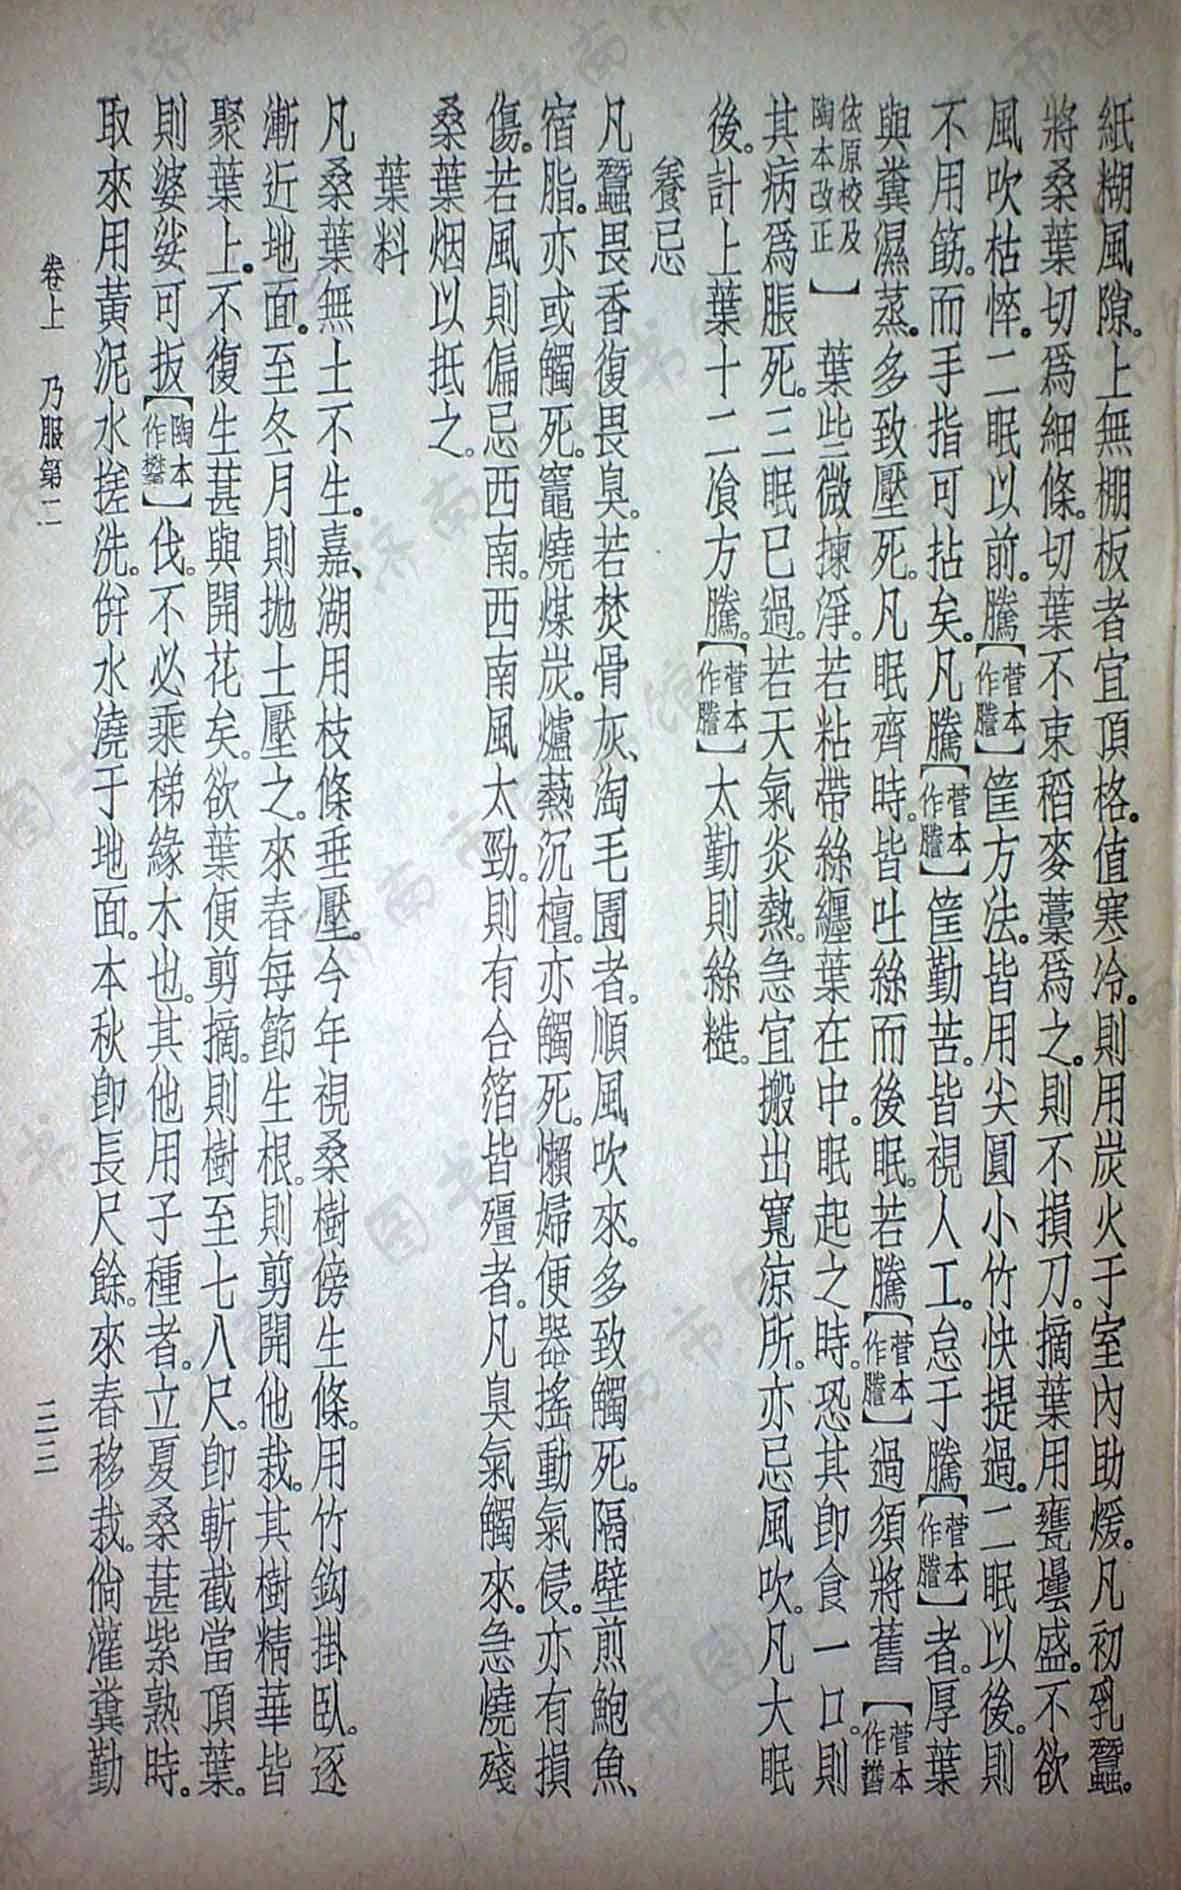 紙糊風隙。上無棚板者宜頂格。值寒冷。則用炭火于室內助煖。凡初乳蠶。
將桑葉切爲細條。切葉不束稻麥藁爲之。則不損刀。摘葉用甕壜盛。不欲
風吹枯悴。二眠以前。騰【菅本作謄】筐方法。皆用尖圓小竹快提過。二眠以後。則
不用筯。而手指可拈矣。凡騰【菅本作謄】筐勤苦。皆視人工。怠于騰【菅本作謄】者。厚葉
與糞濕蒸。多致壓死。凡眠齊時。皆吐絲而後眠。若騰【菅本作謄】過須將舊【菅本作
依原校及陶本改正】葉些微揀淨。若粘帶絲纏葉在中。眠起之時。恐其卽食一口。則
其病爲脹死。三眠已過。若天氣炎熱。急宜搬出寬涼所。亦忌風吹。凡大眠
後。計上葉十二飡方騰。【菅本作謄】太勤則絲糙。
養忌
凡蠶畏香復畏臭。若焚骨灰、淘毛圊者。順風吹來。多致觸死。隔壁煎鮑魚、
宿脂。亦或觸死。竈燒煤炭。爐熱沉檀。亦觸死。懶婦便器搖動氣侵。亦有損
傷。若風則偏忌西南。西南風太勁。則有合箔皆殭者。凡臭氣觸來。急燒殘
桑葉烟以抵之。
葉料
凡桑葉無土不生。嘉、湖用枝條垂壓。今年視桑樹傍生條。用竹鈎掛臥。逐
漸近地面。至冬月則抛土壓之。來春每節生根。則剪開他栽。其樹精華皆
聚葉上。不復生葚與開花矣。欲葉便剪摘。則樹至七八尺。卽斬截當頂葉。
則婆娑可扳【陶本作攀】伐。不必乘梯緣木也。其他用子種者。立夏桑葚紫熟時。
取來用黃泥水搓洗。倂水澆于地面。本秋卽長尺餘。來春移栽。倘灌糞勤
卷上 乃服第二 三三